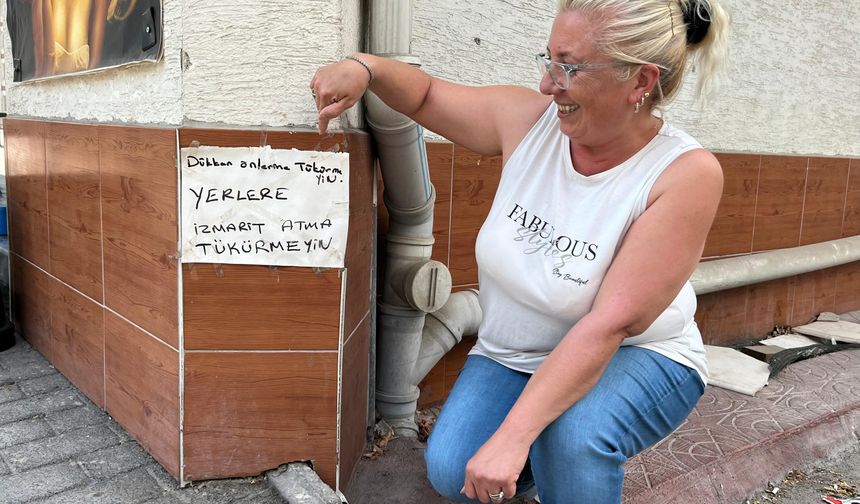 Dükkan önlerme Tükürme
YİN.
YERLERE
İZMARİT ATMA
TÜKÜRMEYİN
FABULOUS
styles
Stay Beautiful